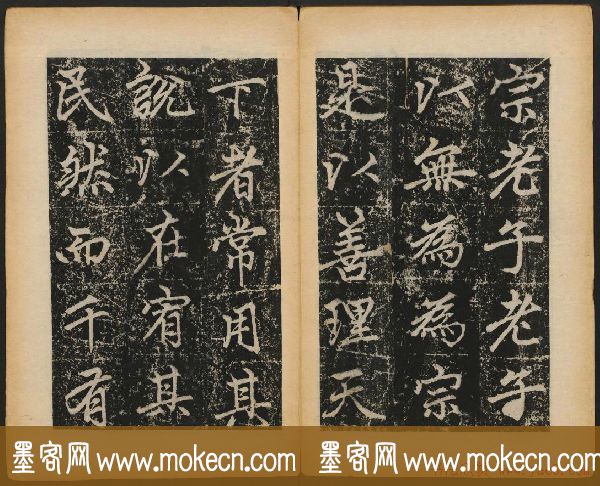 宗老子老子
以無為為宗
是以善理天
下者常用其
說以在宥其
民然而千有
墨客网 www.mokecn.com
墨客网 www.mokecn.com